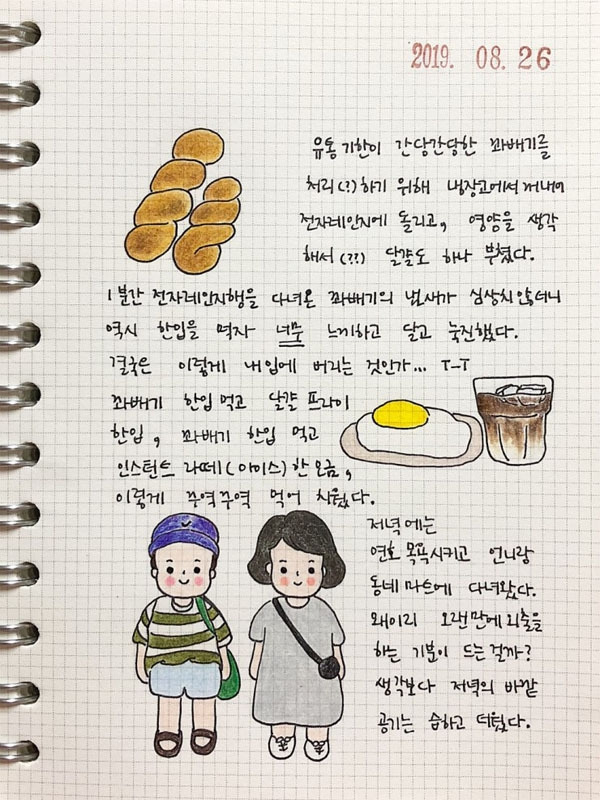 2019. 08. 26
유통기한이 간당간당한 꽈배기를
처리(?)하기 위해 냉장고에서 꺼내어
전자레인지에 돌리고, 영양을 생각
해서(??) 달걀도 하나 부쳤다.
1분간 전자레인지행을 다녀온 꽈배기의 냄새가 심상치않더니
역시 한입을 먹자 너무 느끼하고 달고 눅진했다.
결국은 이렇게 내 입에 버리는 것인가... T-T
꽈배기 한입 먹고 달걀 프라이
한입, 꽈배기 한입 먹고
인스턴트 라떼(아이스) 한모금,
이렇게 꾸역꾸역 먹어 치웠다.
저녁에는
연호 목욕시키고 언니랑
동네 마트에 다녀왔다.
왜이리 오랜만에 외출을
하는 기분이 드는걸까?
생각보다 저녁의 바깥
공기는 습하고 더웠다.